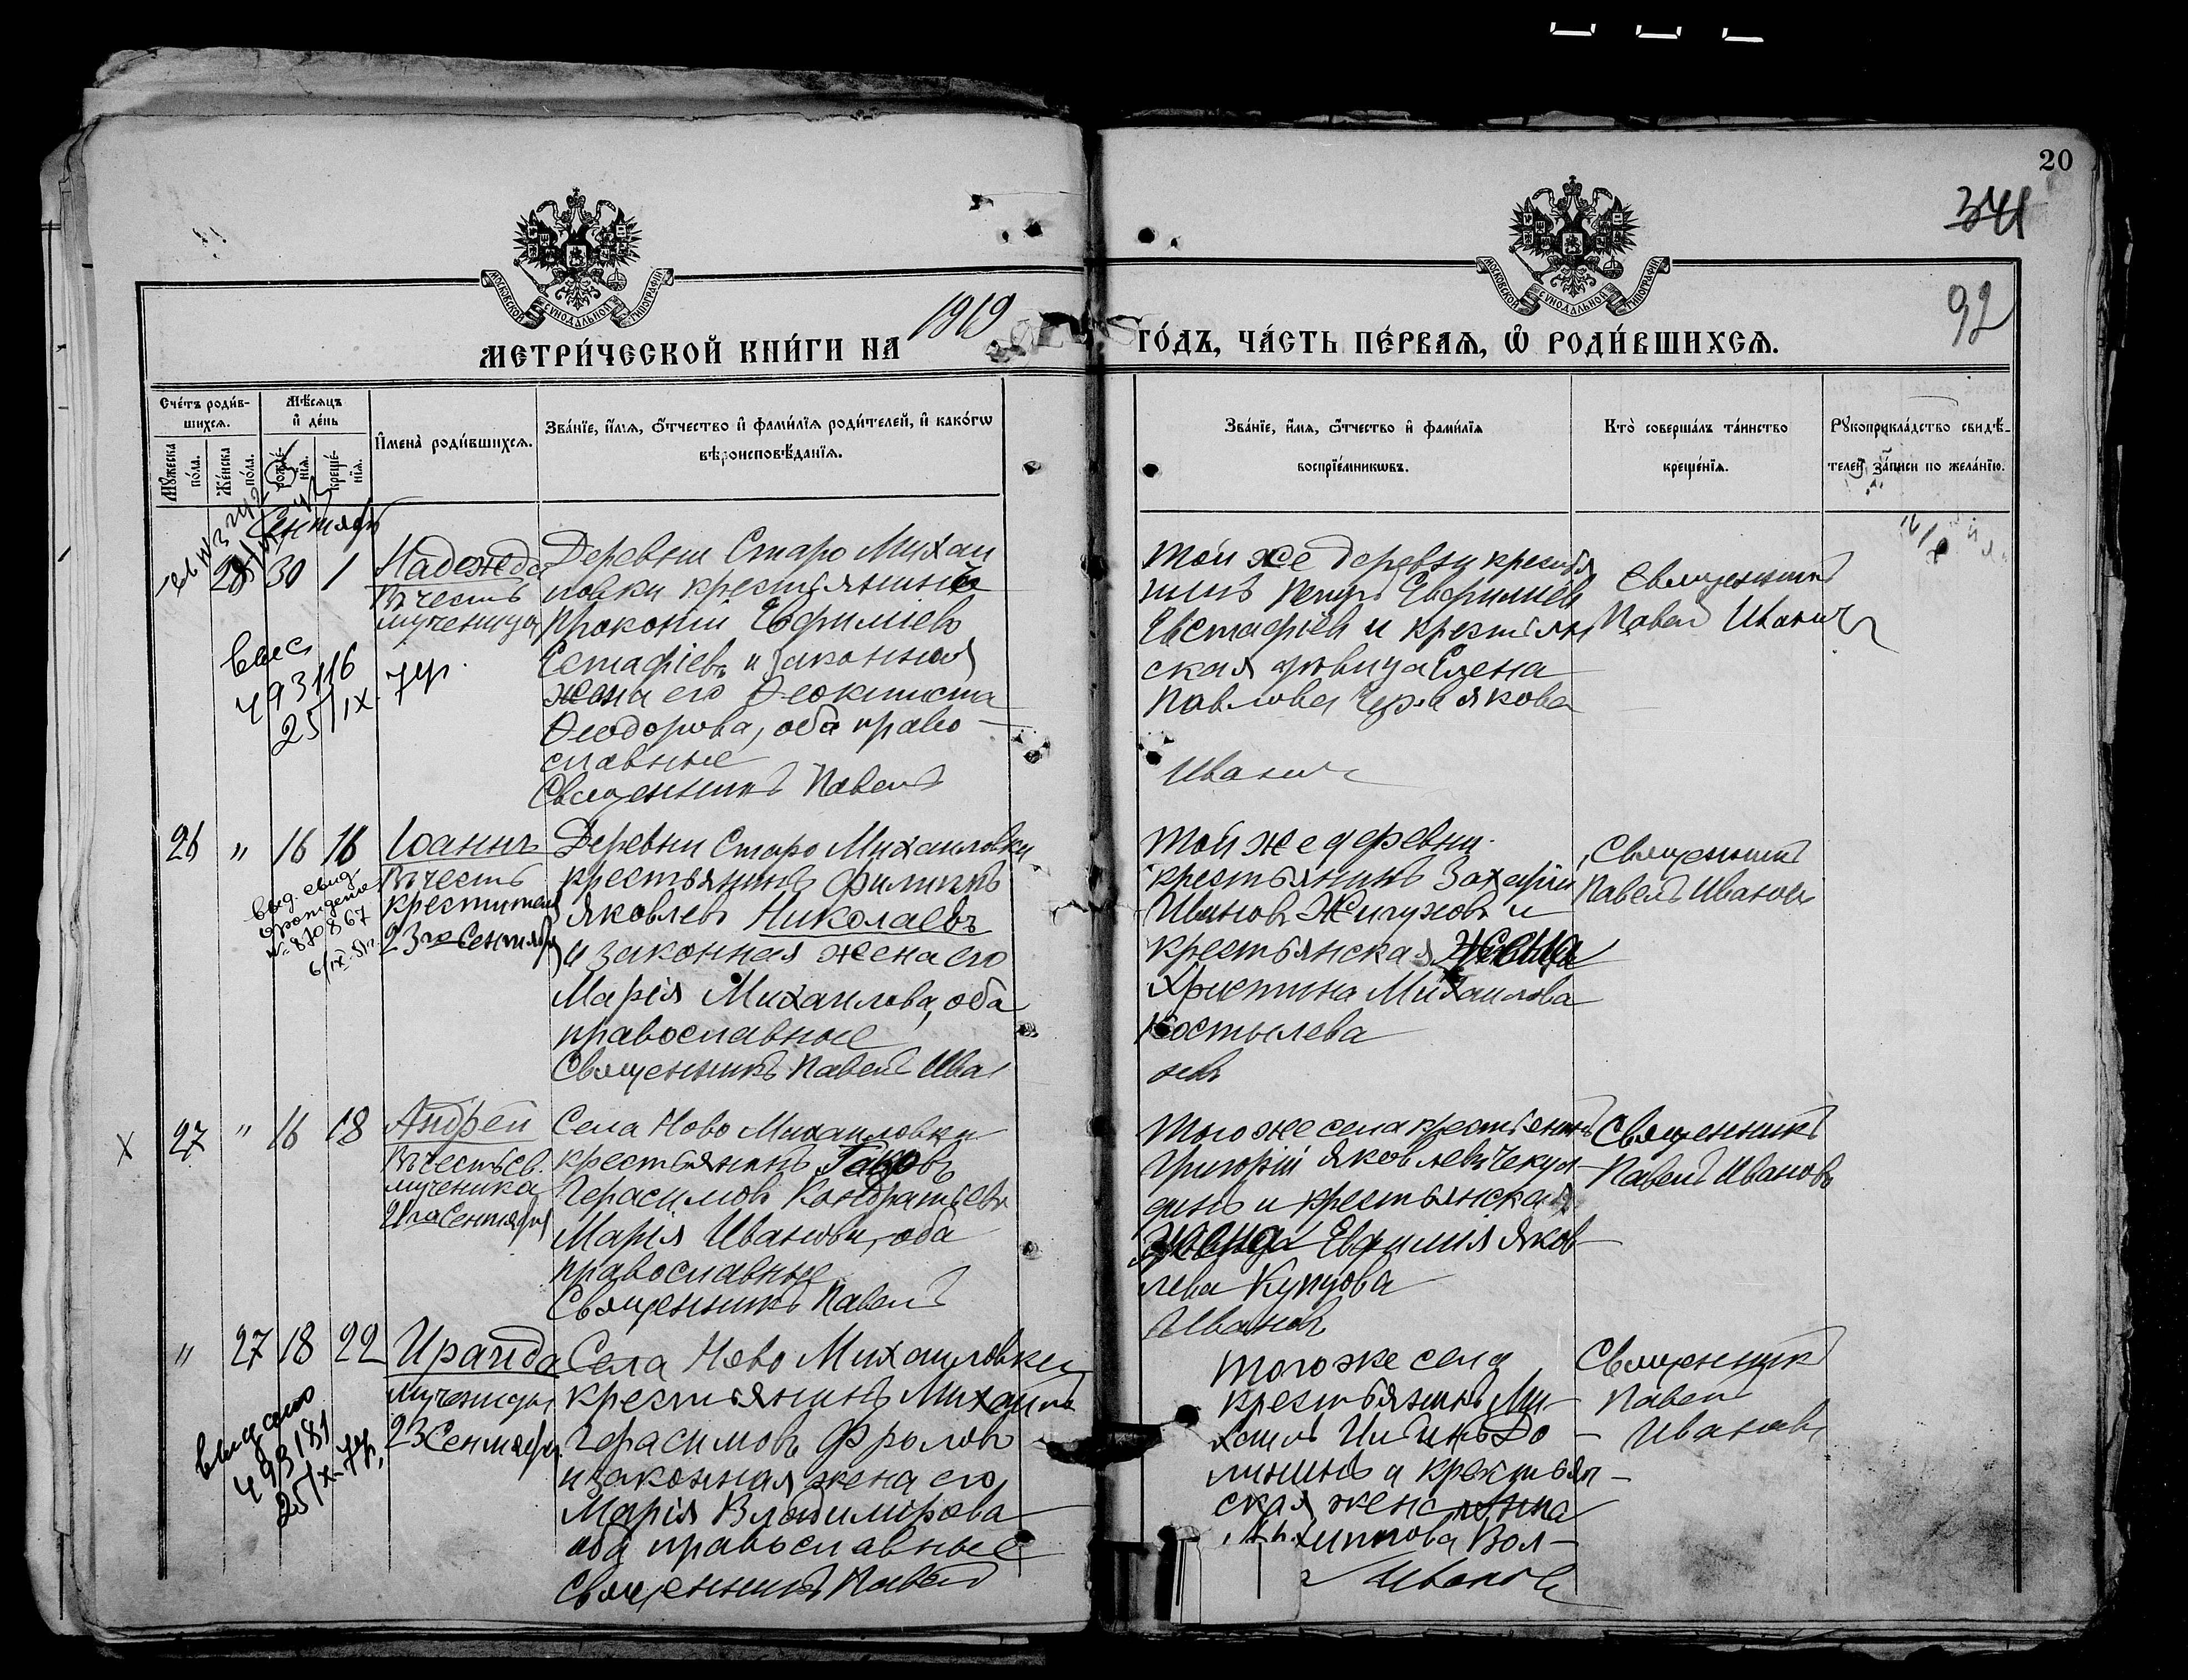 20
341
92
МОСКОВСКОЙ СѴНОДАЛЬНОЙ ТИПОГРАФІИ
МОСКОВСКОЙ СѴНОДАЛЬНОЙ ТИПОГРАФІИ
МЕТРИ́ЧЕСКОЙ КНИ́ГИ НА 1919
ГО́ДЪ, ЧА́СТЬ ПЕ́РВАѦ, Ѿ РОДИ́ВШИХСѦ.
Сче́тъ роди́в-
шихсѧ.
Мꙋжеска по́ла.
Же́нска по́ла.
Мѣ́сѧцъ
и҆ де́нь
рожде́-
нїѧ.
креще́-
нїѧ.
И҆мена̀ роди́вшихсѧ.
Зва́нїе, и҆́мѧ, ѻ҆́тчество и҆ фами́лїѧ роди́телей, и҆ како́гѡ
вѣроисповѣ́данїѧ.
Зва́нїе, и҆́мѧ, ѻ҆́тчество и҆ фами́лїѧ
воспрїе́мникѡвъ.
Кто̀ соверша́лъ та́инство
креще́нїѧ.
Рꙋкоприкла́дство свидѣ́-
телей за́писи по жела́нїю.
Сентябр
28 30 1
Надежда
Въ честь
мученицы
Деревни Старо Михаи
ловки крестьянинъ
Прокопій Евфиміевъ
Естафіевъ и законная
жена его Феоктиста
Феодорова, оба право-
славные
Священникъ Павелъ
Той же деревни крестья
нинъ Петръ Евфиміев
Евстафіев и крестьян
ская дѣвица Елена
Павлова Червякова
Иванов
Священникъ
Павел Иванов
выс
493116
25/IX-7гр.
26 " 16 16
Іоаннъ
Въ честь
крестителя
23го Сентября
выд. свид
о рождении
№ 870867
6/IX-51г.
Деревни Старо Михаиловки
крестьянинъ Филиппъ
Яковлевъ Николаевъ
и законная жена его
Марія Михаилова, оба
православные
Священникъ Павелъ Ива
Той же деревни
крестьянинъ Захарій
Ивановъ Жигуховъ и
крестьянская жена
Христина Михаилова
Костылева
новъ
Священникъ
Павелъ Иванов
X 27 " 16 18
Андрей
Въ честь св.
мученика
Сентября
Села Ново Михаиловки
крестьянинъ
Герасимовъ Кондратьевъ
Марія Иванова, оба
православные
Священникъ Павелъ
Того же села крестьянинъ
Григорій Яковлевъ Чекул-
динъ и крестьянская
Евфимія Яков-
лева Купцова
Иванов
Священникъ
Павелъ Ивановъ
" 27 18 22
Ираида
мученицы
23 Сентября
выдано
493181
25/X-7гр.
Села Ново Михаиловки
крестьянинъ Михаилъ
Герасимовъ Фроловъ
и законная жена его
Марія Владимірова
оба православные
Священникъ Павел
Того же села
крестьянинъ Ми-
хаилъ До-
лининъ и крестьян-
ская жена Анна
Вол-
Иванов
Священникъ
Павел
Ивановъ